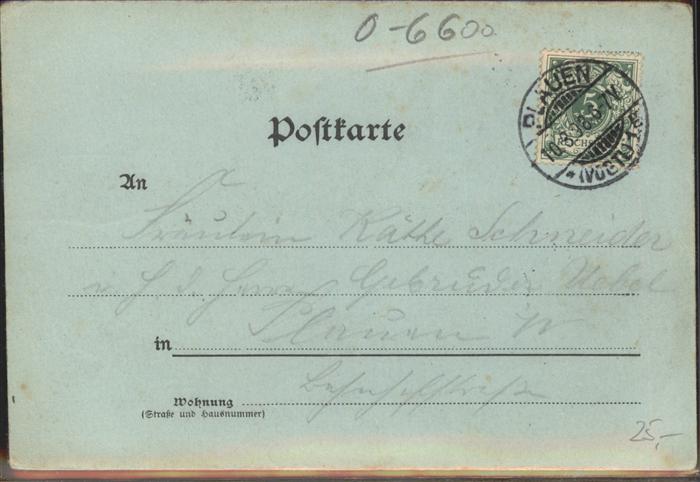 0-6600
PLAUEN
5
* (VOGTL)
Postkarte
An
Fräulein Käthe Schneider
Gebrüder Uebel
in Plauen
Wohnung
(Straße und Hausnummer)
Bahnhofstraße
25,-